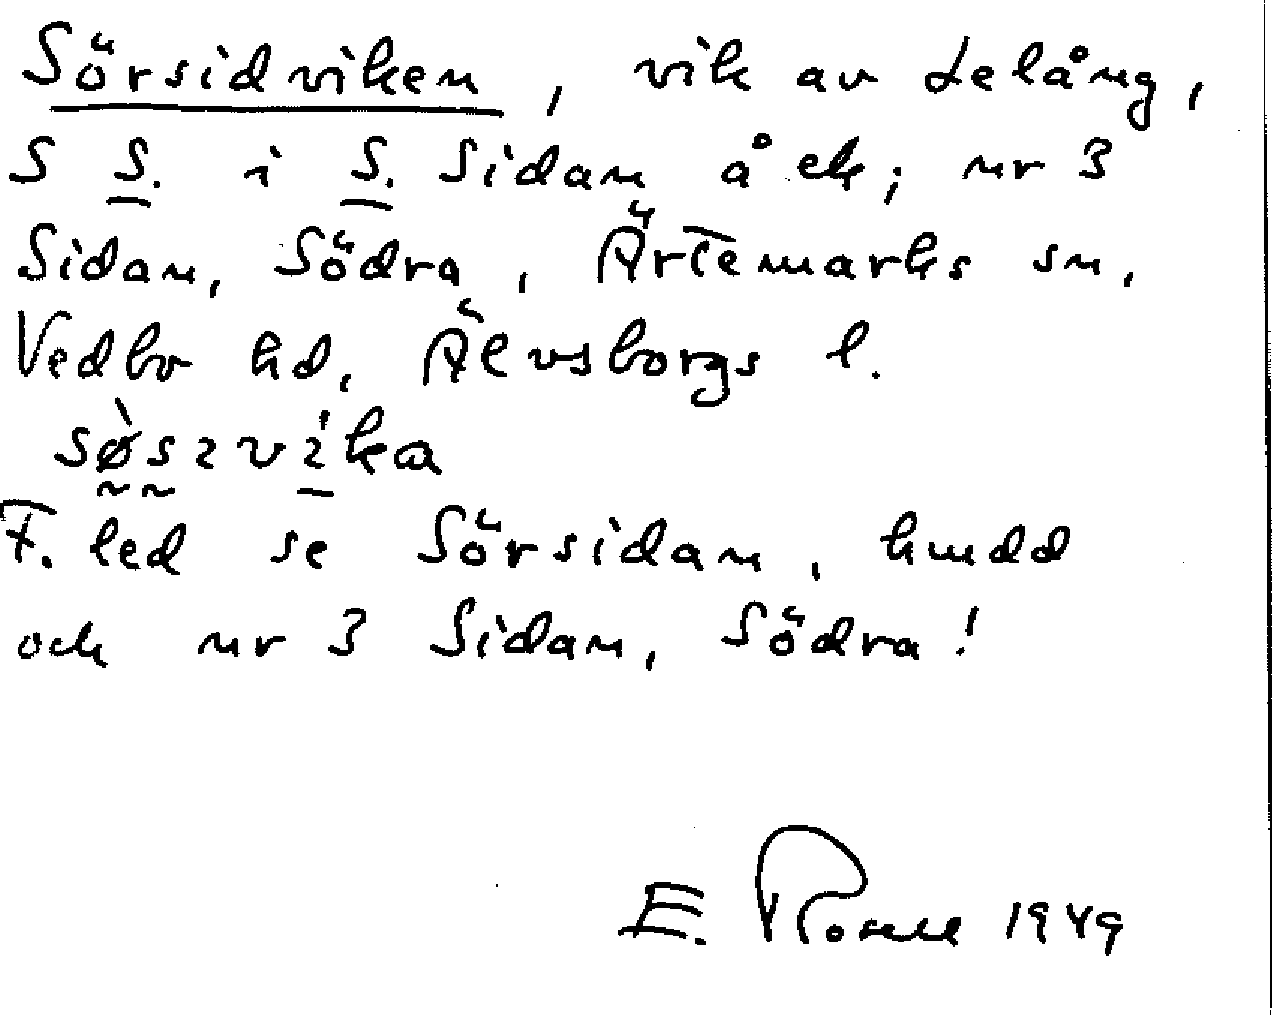 Sörsidviken, vik av Lelång,
S S. i S. Sidan å ek; nr 3
Sidan, Södra, Ärtemarks sn,
Vedbo hd, Älvsborgs l.
F. led se Sörsidan, hmdd
och nr 3 Sidan, Södra!
E. Rosell 1949